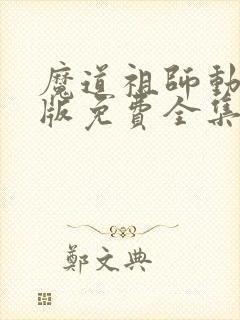 魔道祖師動
版免費全集
鄭文典